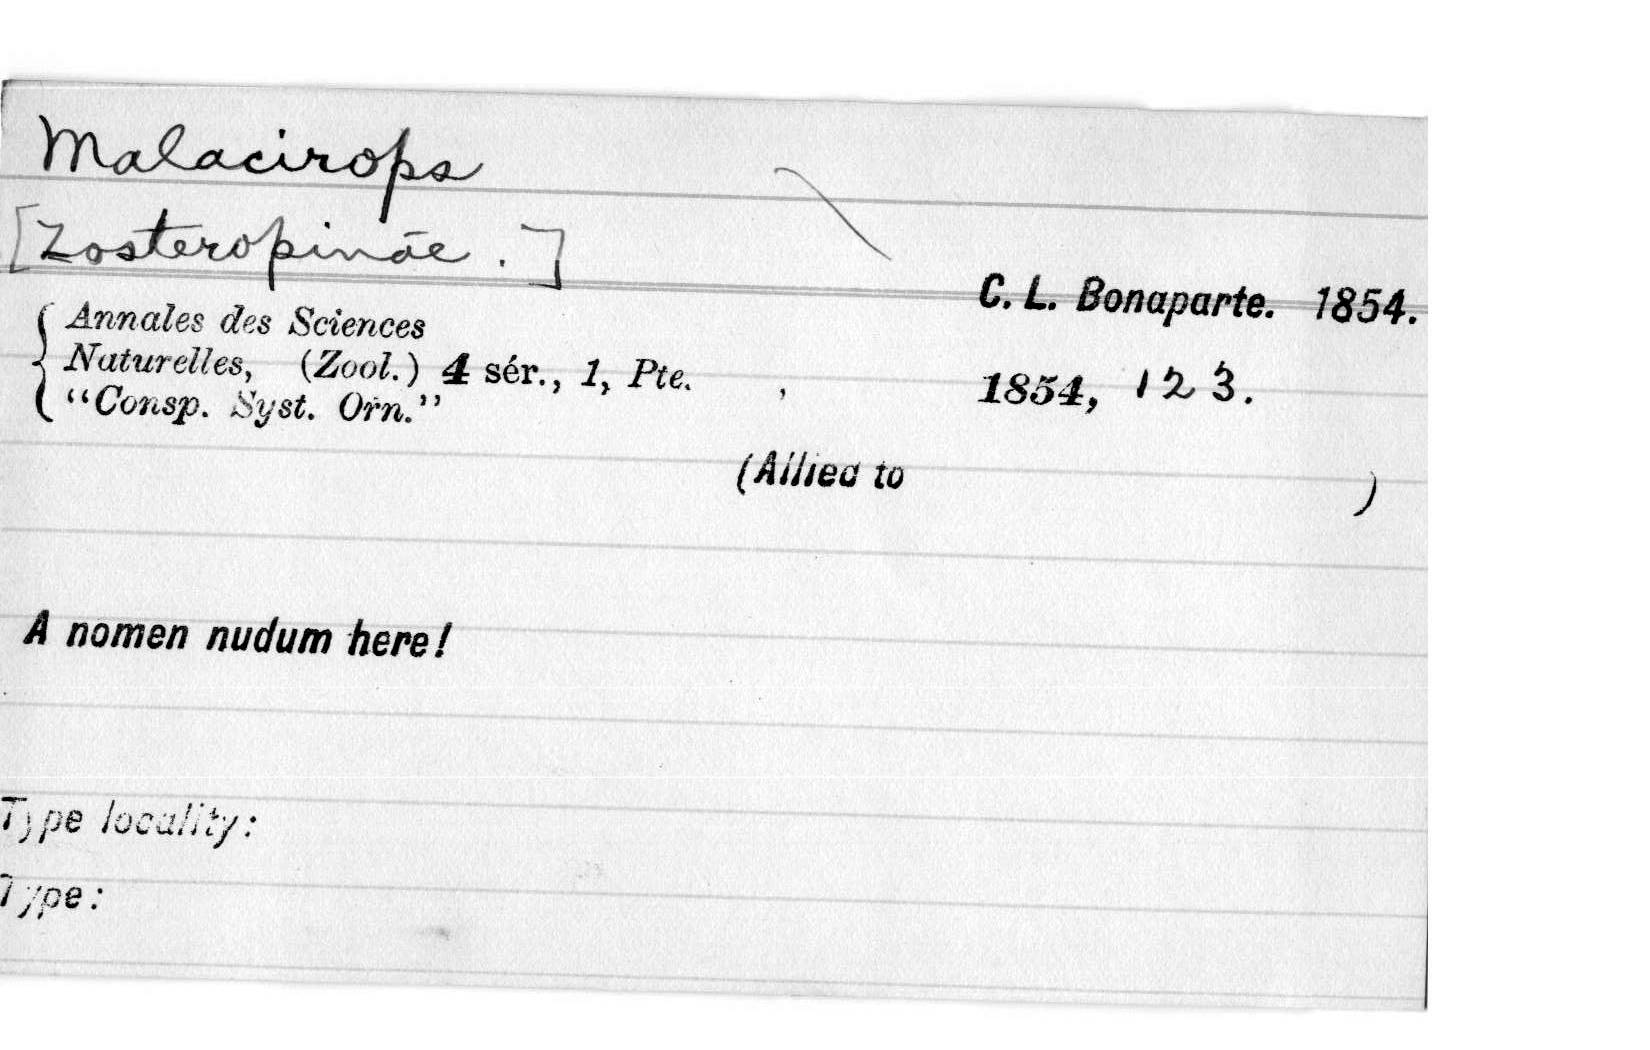 Malacirops
[Zosteropinae.]
C. L. Bonaparte. 1854.
Annales des Sciences
Naturelles, (Zool.) 4 sér., 1, Pte. 1854, 123.
"Consp. Syst. Orn."
(Allied to )
A nomen nudum here!
Type locality:
Type: